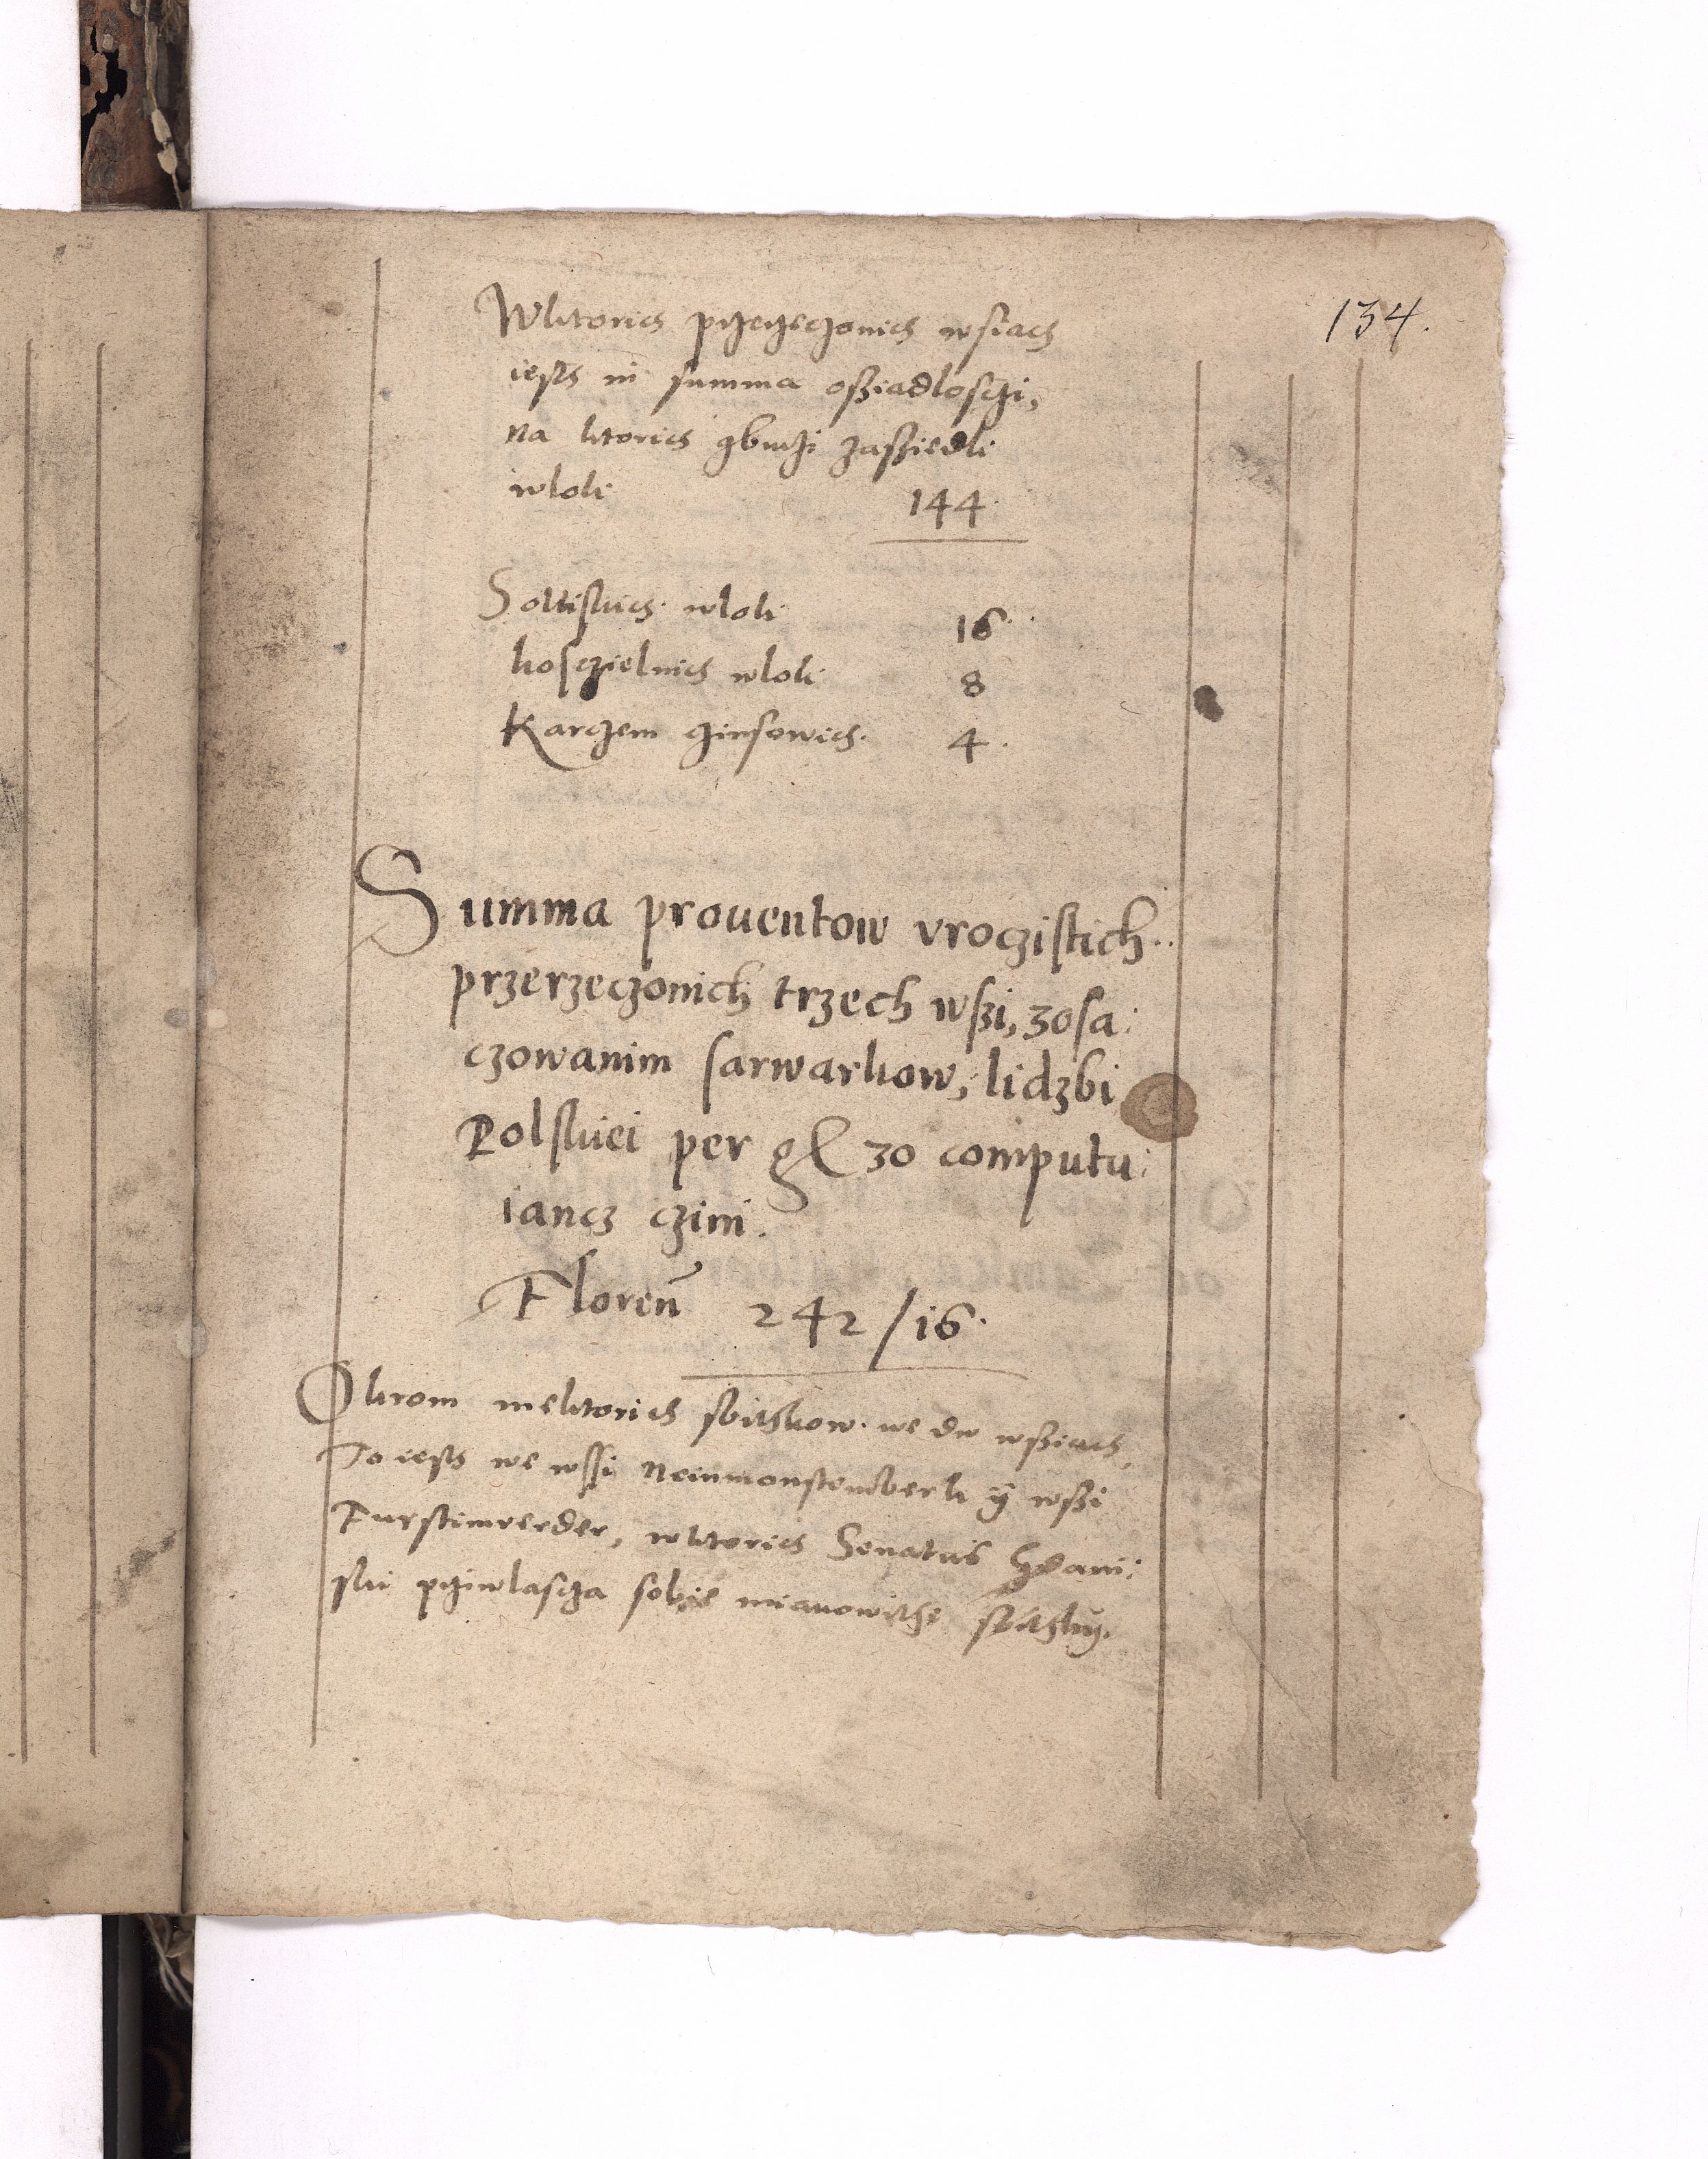 134.
Wktorich przerzeczonich wsiach
iesth in summa oßiadlosczi,
na ktorich gburzi zaßiedli
wlok 144
Soltiskich wlok 16
kosczielnich wlok 8
Karczem czinsowich 4.
Summa prouentow vroczistich
przerzeczonich trzech wßi, zosa:
czowanim sarwarkow, lidzbi
Polskiei per gl 30 computu:
iancz czini.
Floren 242/16.
Okrom niektorich sbithkow we du wßiach,
To iesth we wssi Neinmonstemberk ÿ wßi
Furstimverder, wktorich Senatus Gdani:
ski prziwlascza sobie mianowithe sbithkÿ.